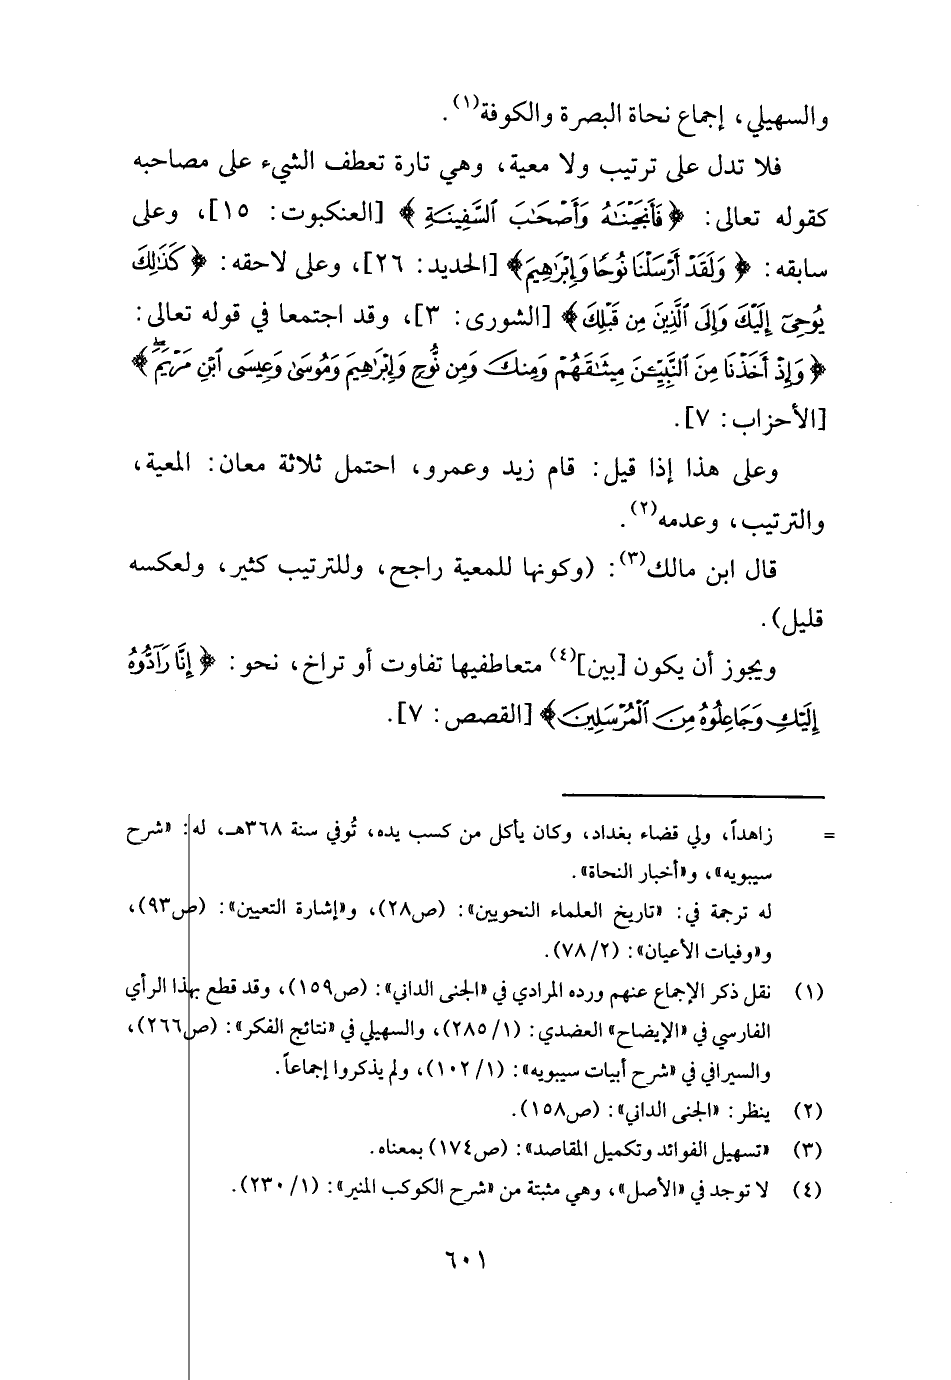 والسهيلي، إجماع نحاة البصرة والكوفة(١).
فلا تدل على ترتيب ولا معية، وهي تارة تعطف الشيء على مصاحبه
كقوله تعالى: ﴿فَأَنجَيْنَٰهُ وَأَصْحَٰبَ ٱلسَّفِينَةِ﴾ [العنكبوت: ١٥]، وعلى
سابقه: ﴿وَلَقَدْ أَرْسَلْنَا نُوحًا وَإِبْرَٰهِيمَ﴾ [الحديد: ٢٦]، وعلى لاحقه: ﴿كَذَٰلِكَ
يُوحِىٓ إِلَيْكَ وَإِلَى ٱلَّذِينَ مِن قَبْلِكَ﴾ [الشورى: ٣]، وقد اجتمعا في قوله تعالى:
﴿وَإِذْ أَخَذْنَا مِنَ ٱلنَّبِيِّـۧنَ مِيثَٰقَهُمْ وَمِنكَ وَمِن نُّوحٍ وَإِبْرَٰهِيمَ وَمُوسَىٰ وَعِيسَى ٱبْنِ مَرْيَمَ ۖ﴾
[الأحزاب: ٧].
وعلى هذا إذا قيل: قام زيد وعمرو، احتمل ثلاثة معان: المعية،
والترتيب، وعدمه(٢).
قال ابن مالك(٣): (وكونها للمعية راجح، وللترتيب كثير، ولعكسه
قليل).
ويجوز أن يكون [بين](٤) متعاطفيها تفاوت أو تراخ، نحو: ﴿إِنَّا رَآدُّوهُ
إِلَيْكِ وَجَاعِلُوهُ مِنَ ٱلْمُرْسَلِينَ﴾ [القصص: ٧].
= زاهداً، ولي قضاء بغداد، وكان يأكل من كسب يده، تُوفي سنة ٣٦٨هـ، له: «شرح
سيبويه»، و«أخبار النحاة».
له ترجمة في: «تاريخ العلماء النحويين»: (ص٢٨)، و«إشارة التعيين»: (ص٩٣)،
و«وفيات الأعيان»: (٧٨/٢).
(١) نقل ذكر الإجماع عنهم ورده المرادي في «الجنى الداني»: (ص١٥٩)، وقد قطع بهذا الرأي
الفارسي في «الإيضاح» العضدي: (٢٨٥/١)، والسهيلي في «نتائج الفكر»: (ص٢٦٦)،
والسيرافي في «شرح أبيات سيبويه»: (١٠٢/١)، ولم يذكروا إجماعاً.
(٢) ينظر: «الجنى الداني»: (ص١٥٨).
(٣) «تسهيل الفوائد وتكميل المقاصد»: (ص١٧٤) بمعناه.
(٤) لا توجد في «الأصل»، وهي مثبتة من «شرح الكوكب المنير»: (٢٣٠/١).
٦٠١